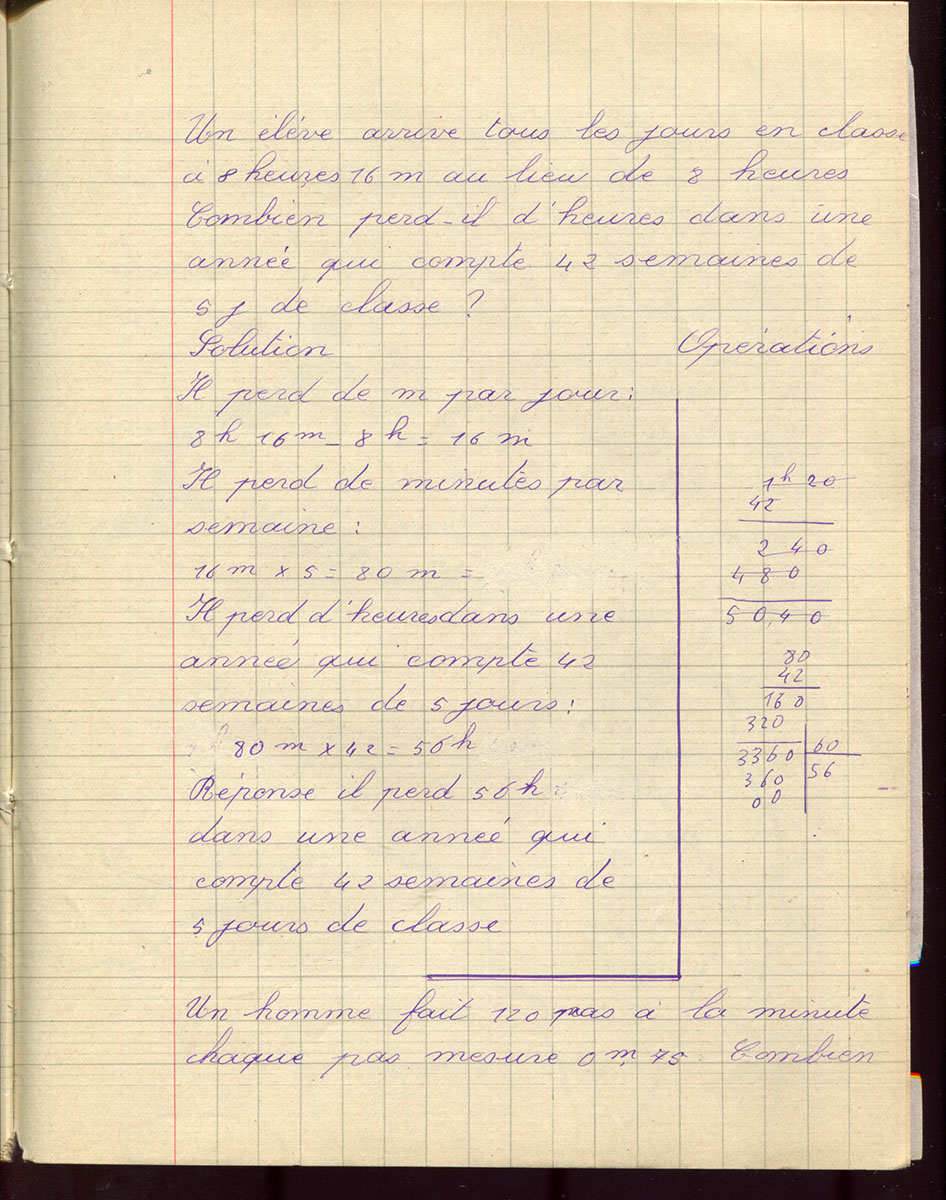 Un élève arrive tous les jours en classe
à 8 heures 16 m au lieu de 8 heures
Combien perd-il d'heures dans une
année qui compte 42 semaines de
5 j de classe ?
Solution Opérations
Il perd de m par jour :
8h 16m - 8h = 16 m
Il perd de minutes par
semaine :
16m x 5 = 80 m =
Il perd d'heures dans une
année qui compte 42
semaines de 5 jours :
80 m x 42 = 56h
Réponse il perd 56h
dans une année qui
compte 42 semaines de
5 jours de classe
1h 20
42
2 4 0
4 8 0
5 0,4 0
80
42
160
320
3360 60
360 56
00
Un homme fait 120 pas à la minute
chaque pas mesure 0 m, 75. Combien